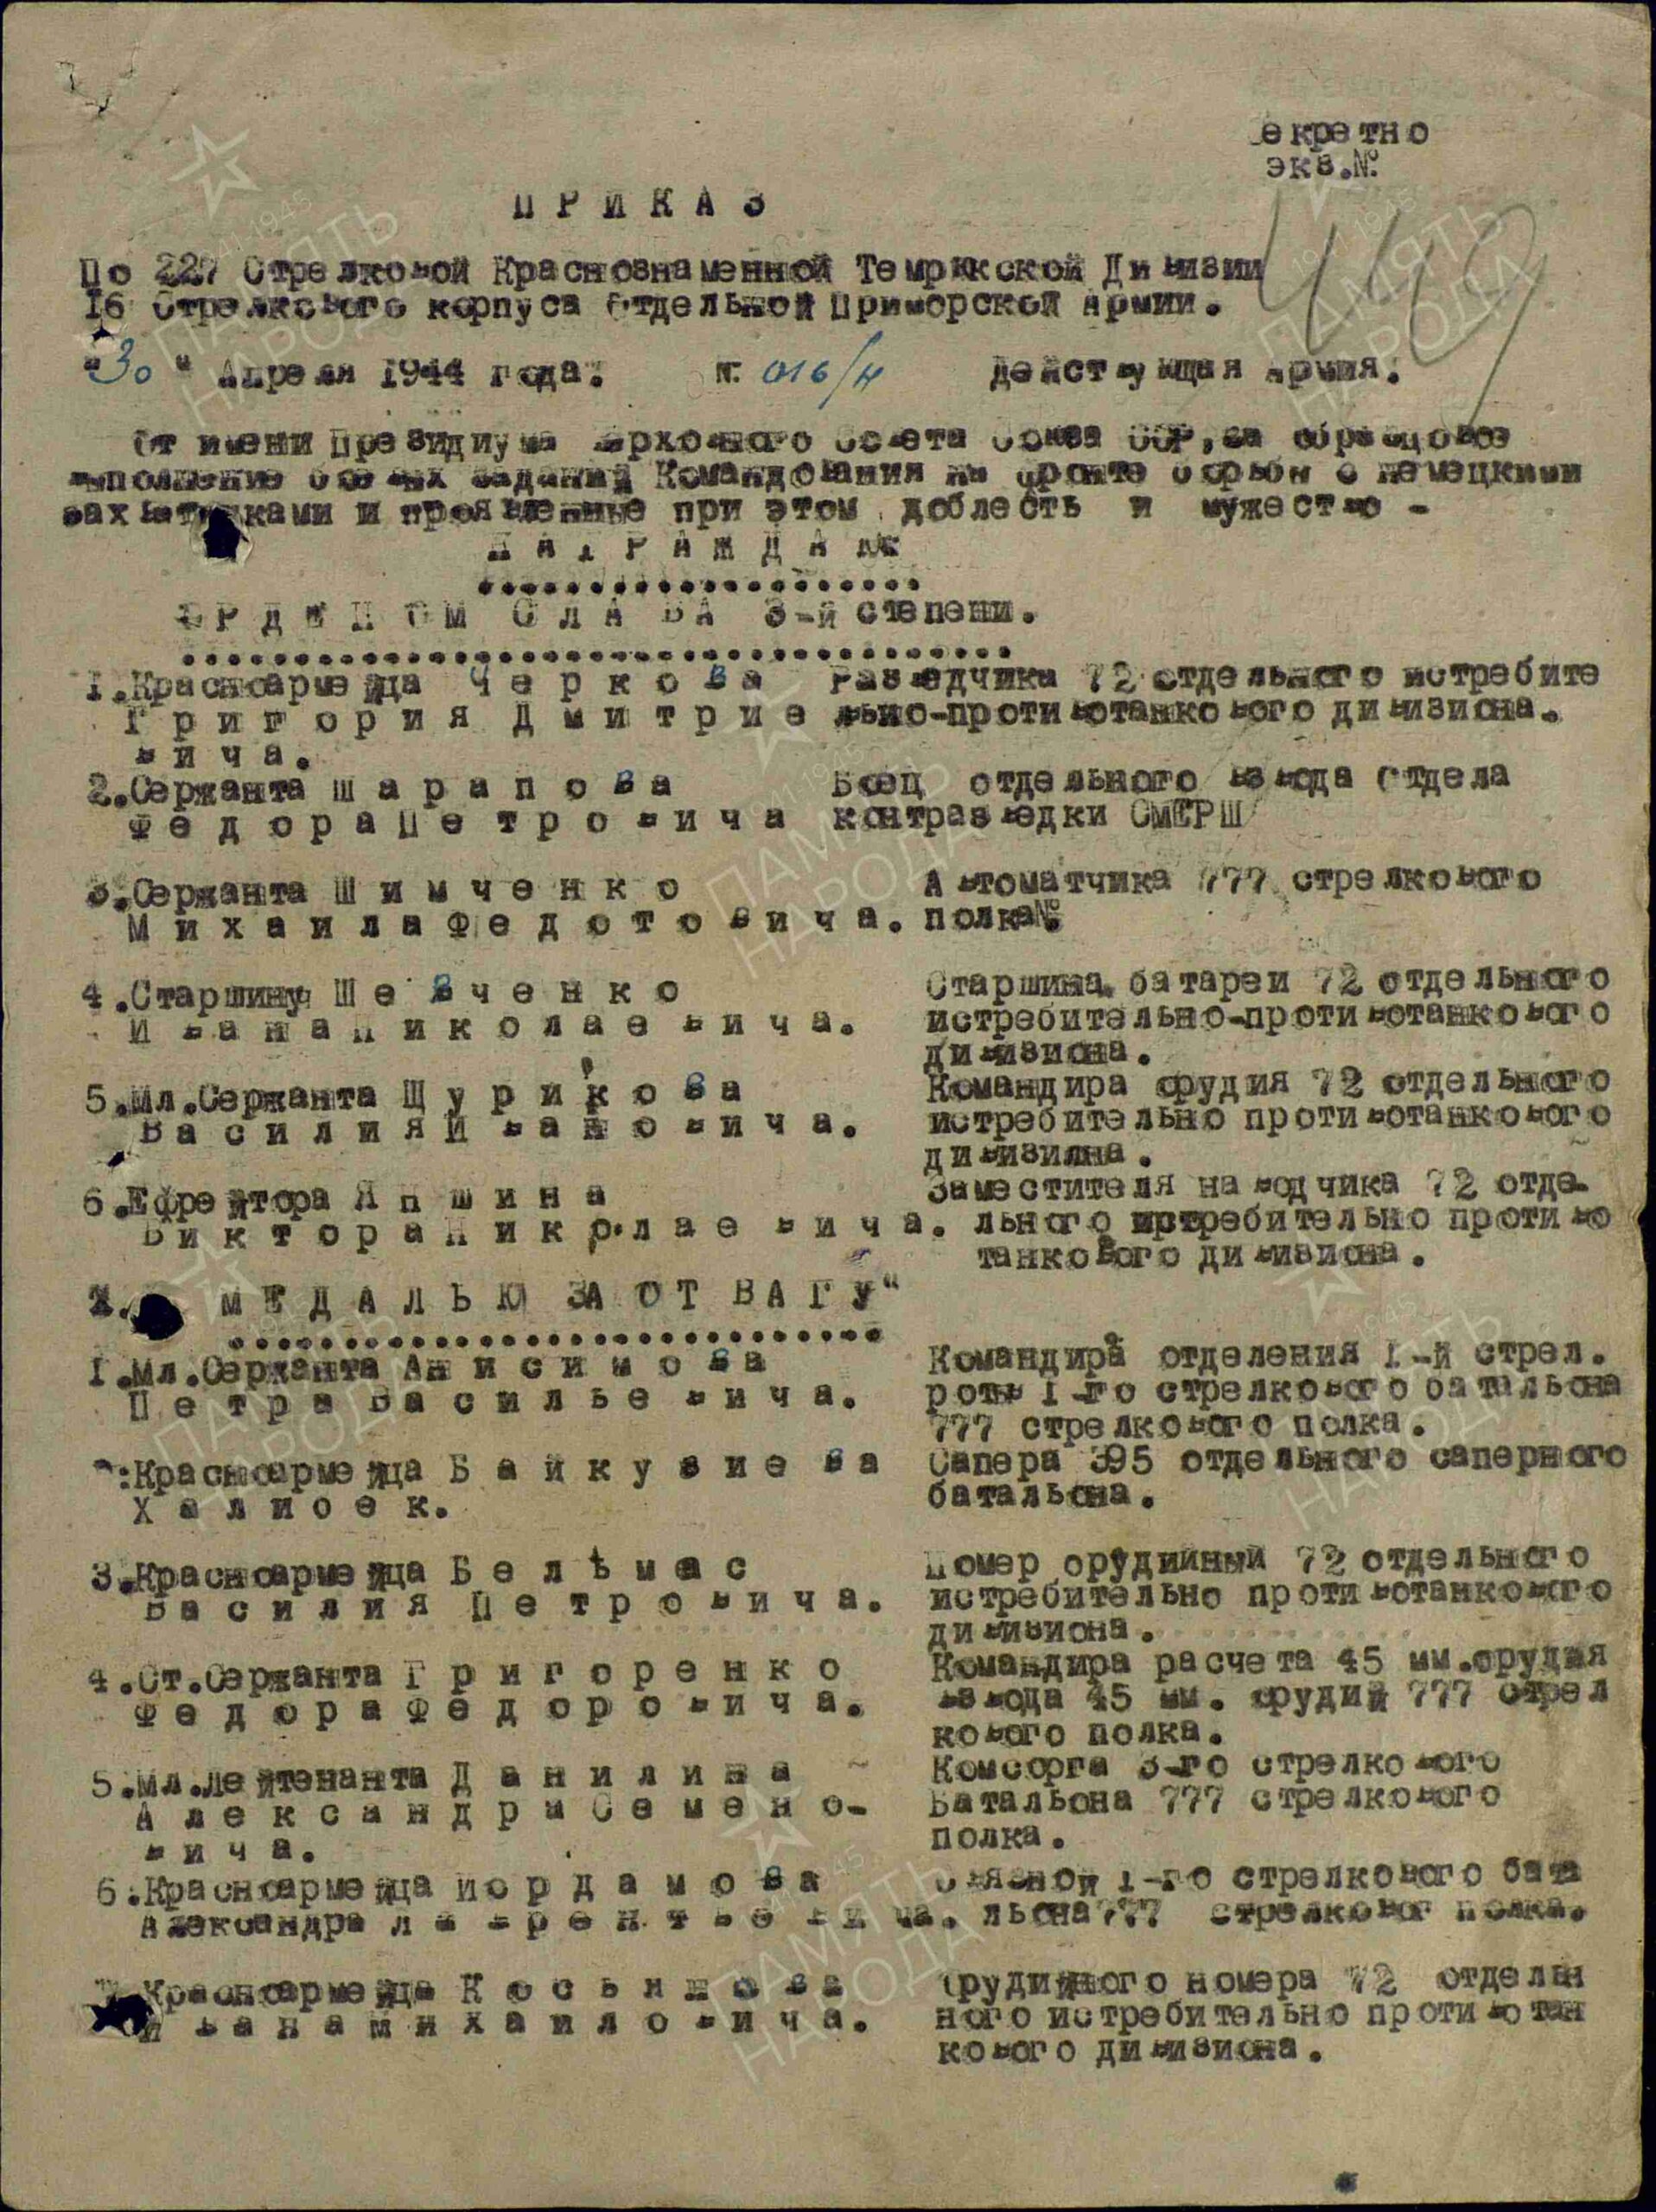 екретно
экз.№
ПРИКАЗ
По 227 Стрелковой Краснознаменной Темрюкской Дивизии
16 Стрелкового корпуса Отдельной Приморской Армии.
"30" Апреля 1944 года. №. 016/н Действующая Армия.
От имени Президиума Верховного Совета Союза ССР, за образцовое
выполнение боевых заданий Командования на фронте борьбы с немецкими
захватчиками и проявленные при этом доблесть и мужество -
НАГРАЖДАЮ
ОРДЕНОМ СЛАВА 3-й степени.
1.Красноармейца Черкова Разведчика 72 отдельного истребите
Григория Дмитрие льно-противотанкового дивизиона.
вича.
2.Сержанта Шарапова Боец отдельного взвода Отдела
Федора Петровича контразведки СМЕРШ
3.Сержанта Шимченко Автоматчика 777 стрелкового
Михаила Федотовича. полка№
4.Старшину Шевченко Старшина батареи 72 отдельного
Ивана Николаевича. истребительно-противотанкового
дивизиона.
5.Мл.Сержанта Щурикова Командира орудия 72 отдельного
Василия Ивановича. истребительно противотанкового
дивизилна.
6.Ефрейтора Япшина Заместителя наводчика 72 отде-
Виктора Николаевича. льного истребительно противо
танкового дивизиона.
МЕДАЛЬЮ ЗА ОТВАГУ"
1.Мл.Сержанта Анисимова Командира отделения 1-й стрел.
Петра Васильевича. роты 1-го стрелкового батальона
777 стрелкового полка.
Красноармейца Байкузиева Сапера 395 отдельного саперного
Халиоек. батальона.
3.Красноармейца Белъмас Номер орудийный 72 отдельного
Василия Петровича. истребительно противотанкового
дивизиона.
4.Ст.Сержанта Григоренко Командира расчета 45 мм.орудия
Федора Федоровича. взвода 45 мм. орудий 777 стрел
кового полка.
5.Мл.лейтенанта Данилина Комсорга 3-го стрелкового
Александра Семено- Батальона 777 стрелкового
вича. полка.
6.Красноармейца Иордамова Связной 1-го стрелкового бата
Александра Лаврентьевича. льона 777 стрелковог полка.
Красноармейца Косьянова Орудийного номера 72 отдельн
Ивана Михаиловича. ного истребительно противотан
кового дивизиона.
ПАМЯТЬ
НАРОДА